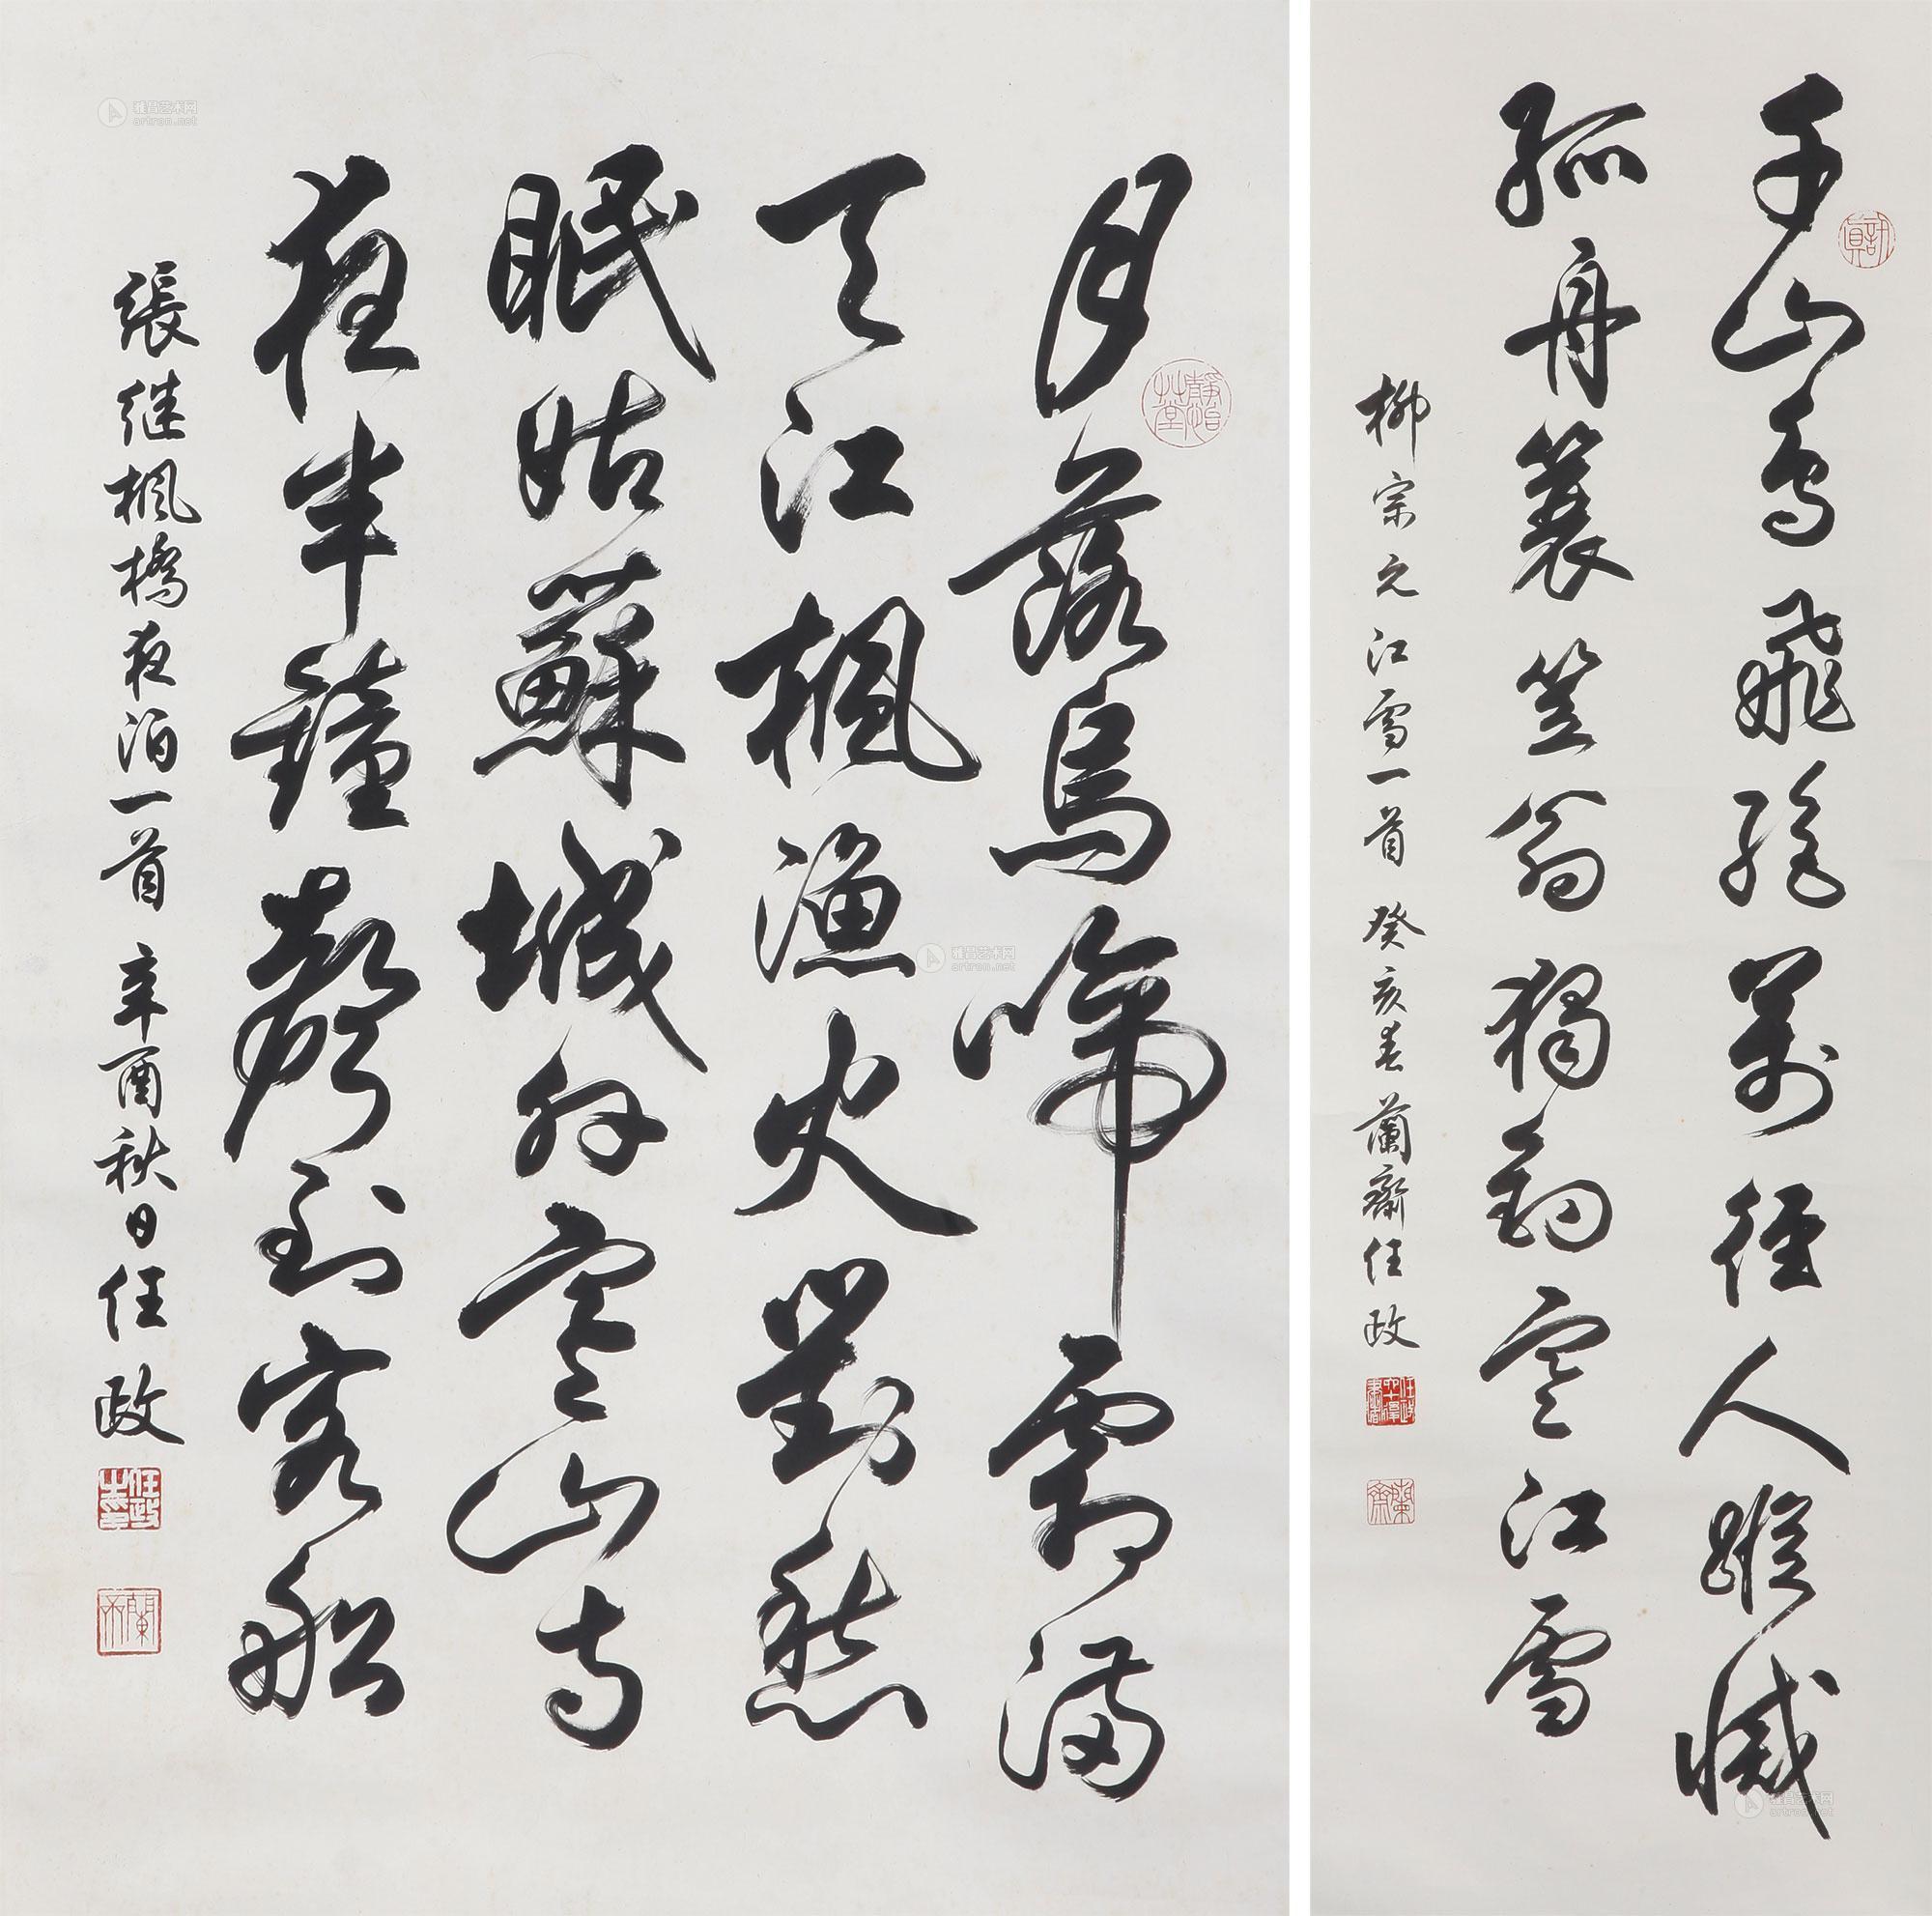 千山鳥飛絕萬徑人蹤滅
孤舟簑笠翁獨釣寒江雪
柳宗元江雪一首 癸亥春蘭齋任政
月落烏啼霜滿
天江楓漁火對愁
眠姑蘇城外寒山寺
夜半鐘聲到客船
張継楓橋夜泊一首 辛酉秋日任政
雅昌艺术网
artron.net